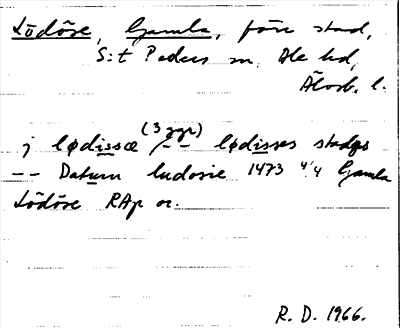 Lödöse, Gamla, förr stad,
S:t Peders sn, Ale hd,
Älvsb. l.
j lødissæ (3 ggr) -- lødisses stadgs
-- Datum ludosie 1473 4/4 Gamla
Lödöse RAp or.
R. D. 1966.